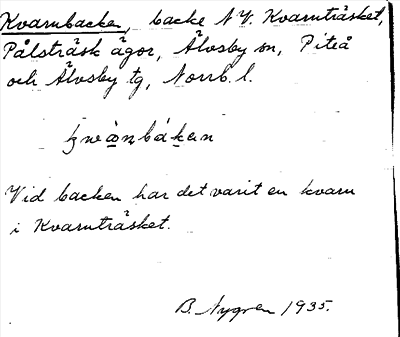 Kvarnbacken, backe NV. Kvarnträsket,
Pålsträsk ägor, Älvsby sn, Piteå
och Älvsby tg, Norrb. l.
Vid backen har det varit en kvarn
i Kvarnträsket.
B. Nygren 1935.